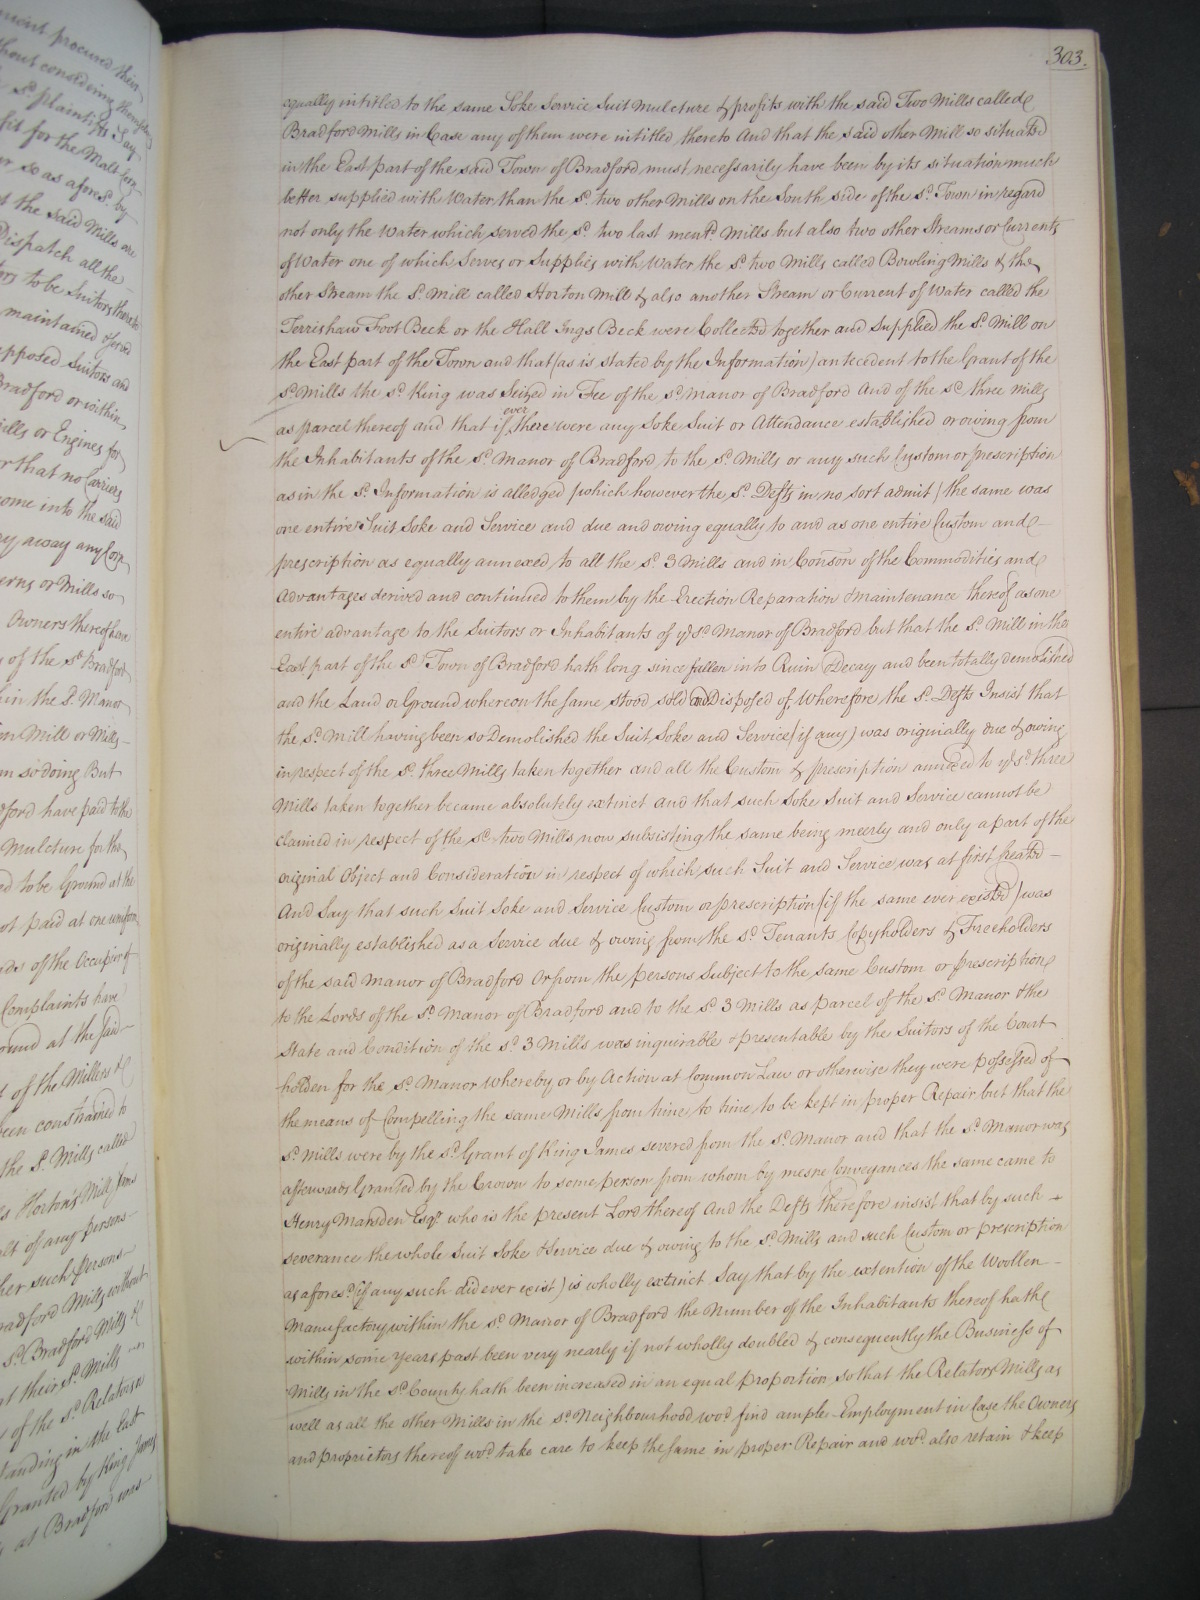 303.
equally intitled to the same Soke Service Suit Mulcture & profits with the said Two Mills called
Bradford Mills in Case any of them were intitled thereto And that the said other Mill so situated
in the East part of the said Town of Bradford must necessarily have been by its situation much
better supplied with Water than the sd. two other Mills on the South side of the sd. Town in regard
not only the Water which served the sd. two last mentd. Mills but also two other Streams or Currents
of Water one of which Serves or Supplies with Water the sd. two Mills called Bowling Mills & the
other Stream the sd. Mill called Horton Mill & also another Stream or Current of Water called the
Terrishaw Foot Beck or the Hall Ings Beck were Collected together and Supplied the sd. Mill on
the East part of the Town and that (as is stated by the Information) antecedent to the Grant of the
sd. Mills the sd. King was Seized in Fee of the sd. Manor of Bradford and of the sd. three Mills
as parcel thereof and that if ever there were any Soke Suit or Attendance established or owing from
the Inhabitants of the sd. Manor of Bradford to the sd. Mills or any such Custom or prescription
as in the sd. Information is alledged (which however the sd. Defts in no sort admit) the same was
one entire Suit Soke and Service and due and owing equally to and as one entire Custom and
prescription as equally annexed to all the sd. 3 Mills and in Conson of the Commodities and
Advantages derived and continued to them by the Erection Reparation & Maintenance thereof as one
entire advantage to the Suitors or Inhabitants of ye sd. Manor of Bradford but that the sd. Mill in the
East part of the sd. Town of Bradford hath long since fallen into Ruin & Decay and been totally demolished
and the Land or Ground whereon the same stood sold and Disposed of Wherefore the sd. Defts Insist that
the sd. Mill having been so Demolished the Suit Soke and Service (if any) was originially due & owing
in respect of the sd. three Mills taken together and all the Custom & prescription annexed to ye sd. three
Mills taken together became absolutely extinct and that such Soke Suit and Service cannot be
claimed in respect of the sd. two Mills now subsisting the same being meerly and only a part of the
original Object and Consideration in respect of which such Suit and Service was at first Created
And Say that such Suit Soke and Service Custom or prescription (if the same ever existed) was
originally established as a Service due & owing from the sd. Tenants Copyholders & Freeholders
of the said Manor of Bradford Or from the persons Subject to the same Custom or prescription
to the Lords of the sd. Manor of Bradford and to the sd. 3 Mills as parcel of the sd. Manor & the
State and Condition of the sd. 3 Mills was inquirable & presentable by the Suitors of the Court
holden for the sd. Manor whereby or by Action at Common Law or otherwise they were possessed of
the means of Compelling the same Mills from time to time to be kept in proper Repair but that the
sd. Mills were by the sd. Grant of King James severed from the sd. Manor and that the sd. Manor was
afterwards Granted by the Crown to some person from whom by mesne Conveyances the same came to
Henry Marsden Esqr. who is the present Lord thereof And the Defts therefore insist that by such
severance the whole Suit Soke & Service due & owing to the sd. Mills and such Custom or prescription
as aforesd. (if any such did ever exist) is wholly extinct Say that by the extention of the Woollen
Manufactory within the sd. Manor of Bradford the Number of the Inhabitants thereof hath
within some years past been very nearly if not wholly doubled & consequently the Business of
Mills in the sd. County hath been increased in an equal proportion so that the Relators Mills as
well as all the other Mills in the sd. Neighbourhood wod. find ample Employment in Case the Owners
and proprietors thereof wod. take care to keep the same in proper Repair and wod. also retain & keep